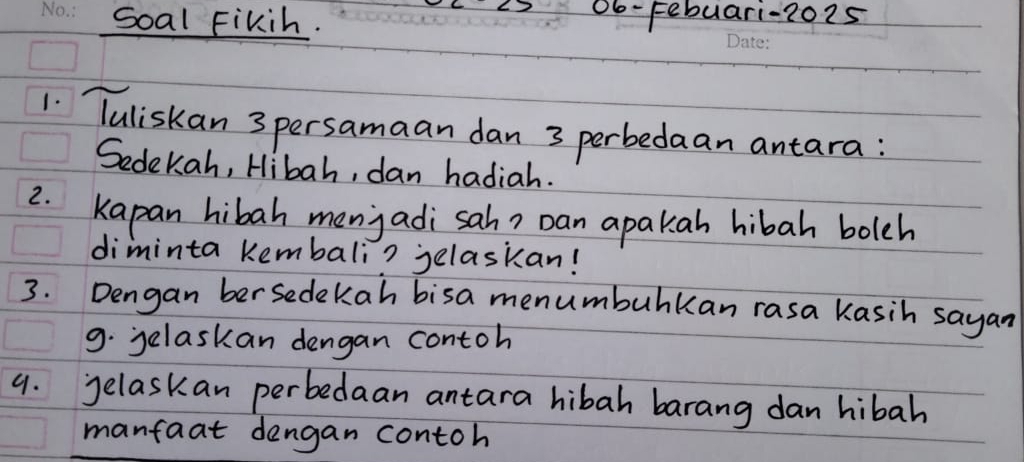 No.:
Soal Fikih.
06-Febuari-2025
Date:
1. Tuliskan 3 persamaan dan 3 perbedaan antara :
Sedekah, Hibah, dan hadiah.
2. kapan hibah menjadi sah? Dan apakah hibah boleh
diminta kembali? jelaskan!
3. Dengan bersedekah bisa menumbuhkan rasa kasih sayan
g. jelaskan dengan contoh
4. jelaskan perbedaan antara hibah barang dan hibah
manfaat dengan contoh